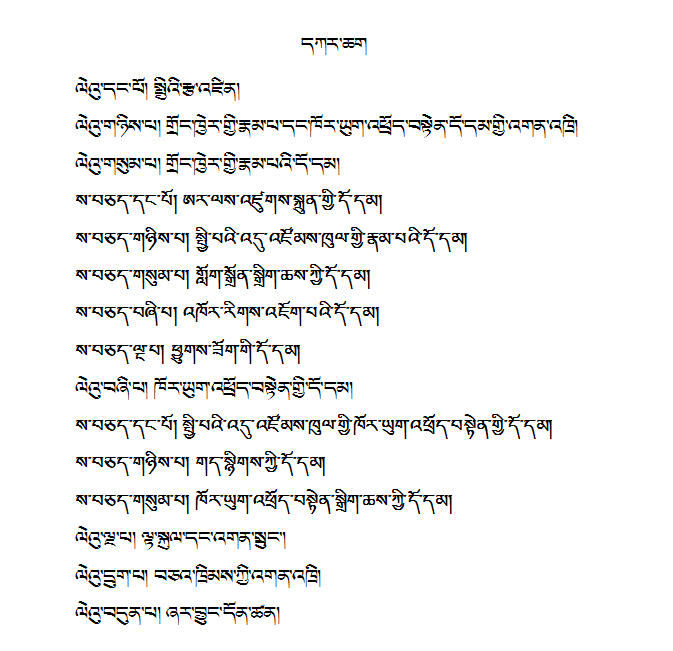 དཀར་ཆག
ལེའུ་དང་པོ། སྤྱིའི་རྩ་འཛིན།
ལེའུ་གཉིས་པ། གྲོང་ཁྱེར་གྱི་རྣམ་པ་དང་ཁོར་ཡུག་འཕྲོད་བསྟེན་དོ་དམ་གྱི་འགན་འཁྲི།
ལེའུ་གསུམ་པ། གྲོང་ཁྱེར་གྱི་རྣམ་པའི་དོ་དམ།
ས་བཅད་དང་པོ། ཨར་ལས་འཛུགས་སྐྲུན་གྱི་དོ་དམ།
ས་བཅད་གཉིས་པ། སྤྱི་པའི་འདུ་འཛོམས་ཁུལ་གྱི་རྣམ་པའི་དོ་དམ།
ས་བཅད་གསུམ་པ། གློག་སྒྲོན་སྒྲིག་ཆས་ཀྱི་དོ་དམ།
ས་བཅད་བཞི་པ། འཁོར་རིགས་འཇོག་པའི་དོ་དམ།
ས་བཅད་ལྔ་པ། ཕྱུགས་ཟོག་གི་དོ་དམ།
ལེའུ་བཞི་པ། ཁོར་ཡུག་འཕྲོད་བསྟེན་གྱི་དོ་དམ།
ས་བཅད་དང་པོ། སྤྱི་པའི་འདུ་འཛོམས་ཁུལ་གྱི་ཁོར་ཡུག་འཕྲོད་བསྟེན་གྱི་དོ་དམ།
ས་བཅད་གཉིས་པ། གད་སྙིགས་ཀྱི་དོ་དམ།
ས་བཅད་གསུམ་པ། ཁོར་ཡུག་འཕྲོད་བསྟེན་སྒྲིག་ཆས་ཀྱི་དོ་དམ།
ལེའུ་ལྔ་པ། ལྟ་སྐུལ་དང་འགན་སྲུང་།
ལེའུ་དྲུག་པ། བཅའ་ཁྲིམས་ཀྱི་འགན་འཁྲི།
ལེའུ་བདུན་པ། ཞར་བྱུང་དོན་ཚན།